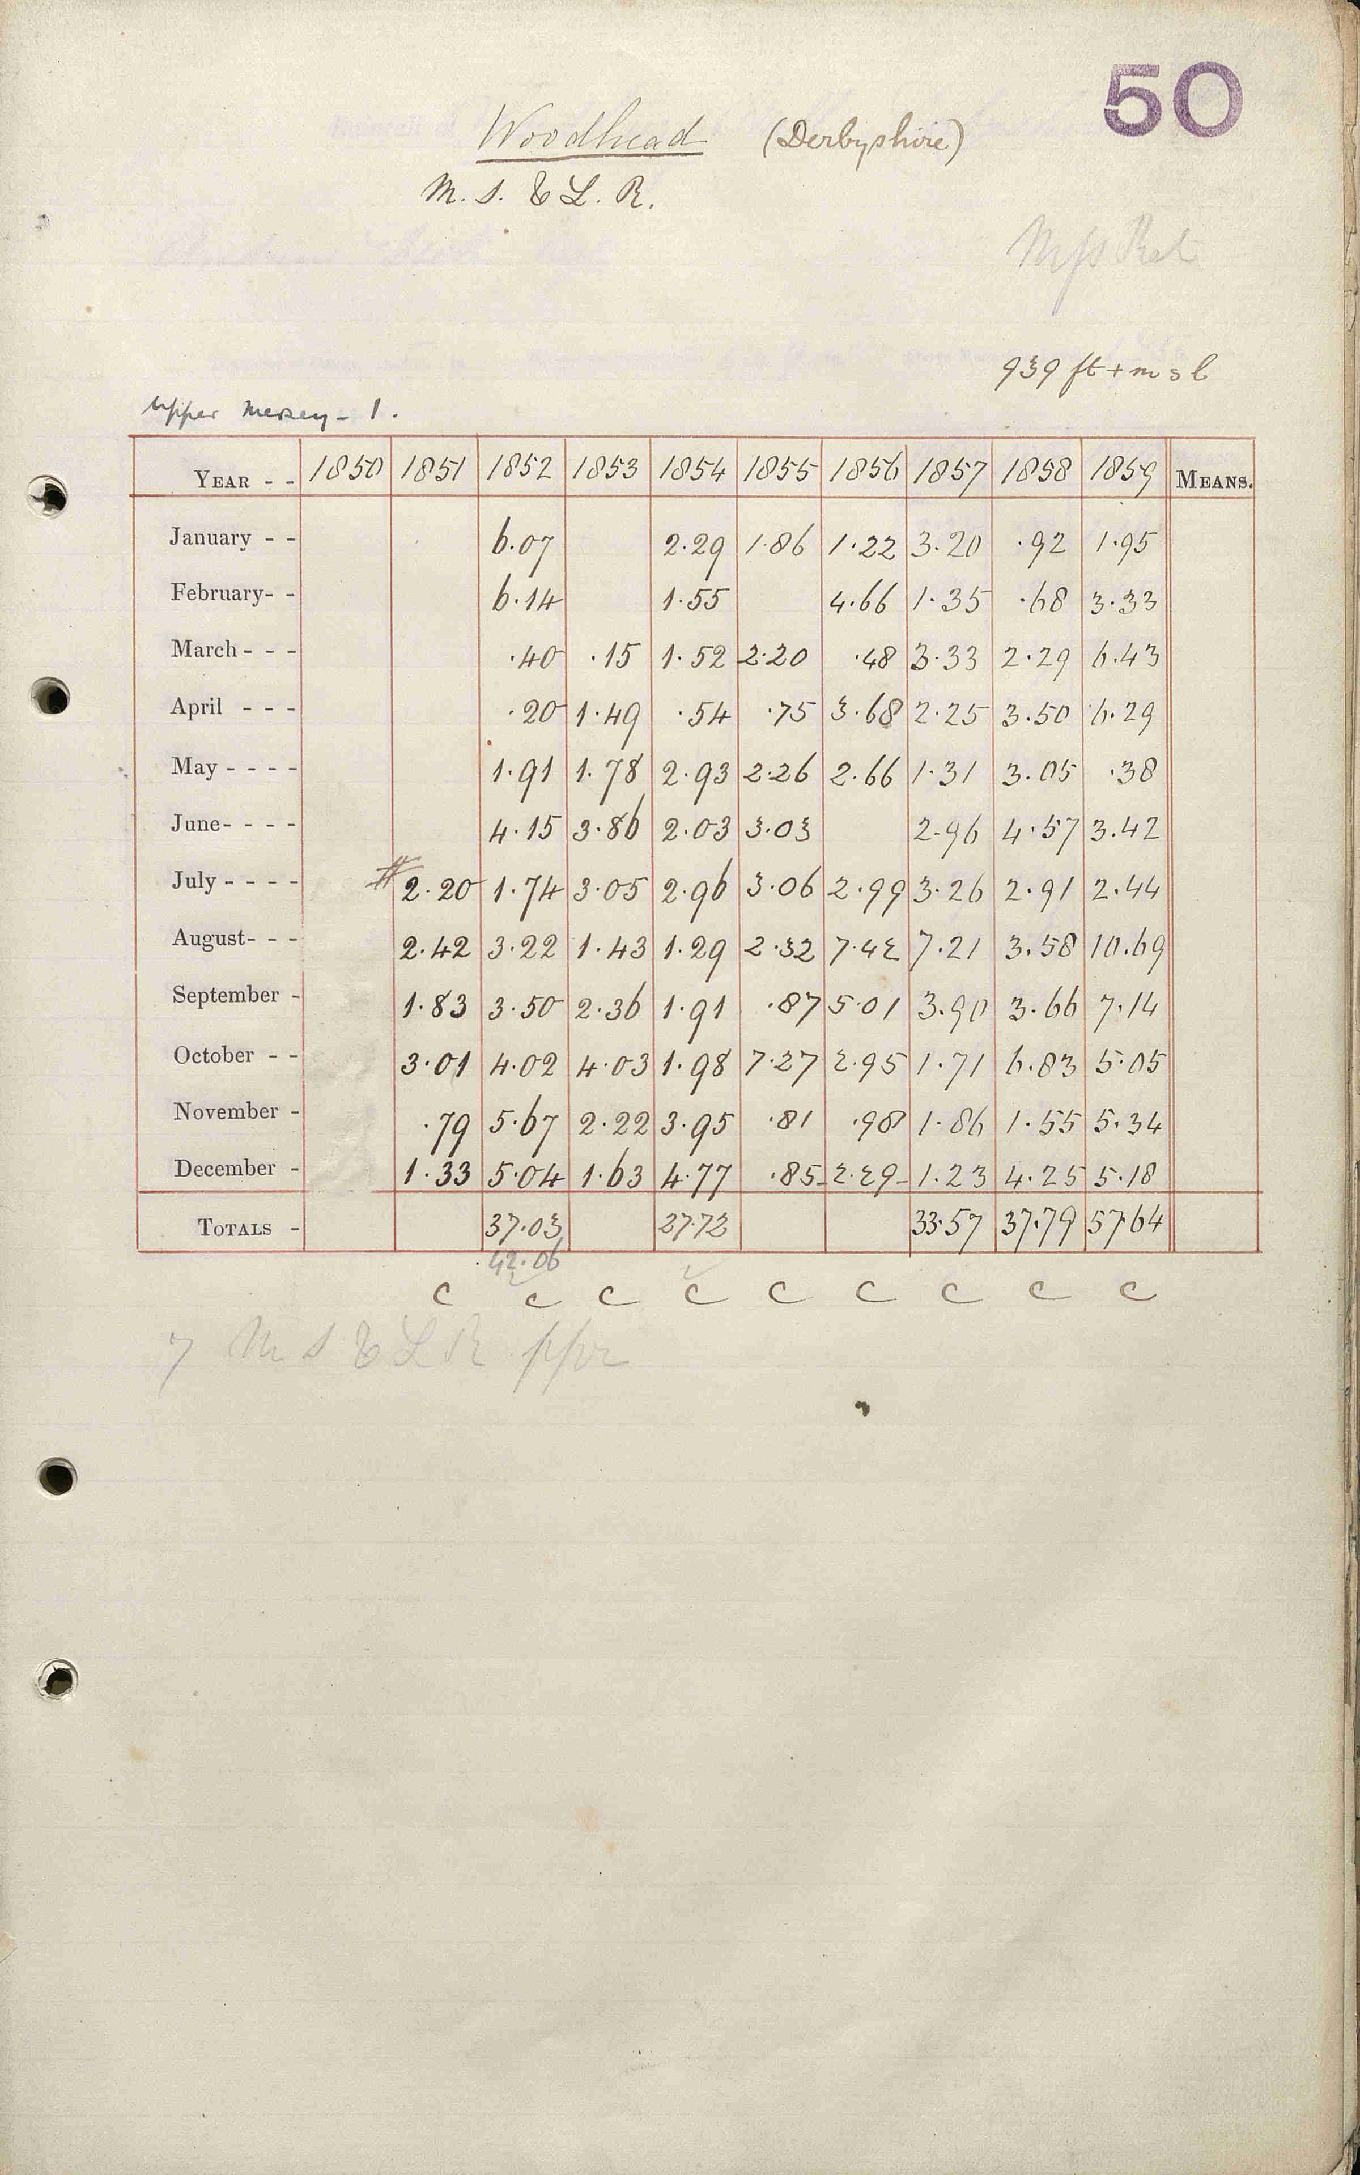 50
Woodhead (Derbyshire)
M. S. & L. R.
Mss Ret
939 ft + m s l
Upper Mersey - 1.
YEAR - - 1850 1851 1852 1853 1854 1855 1856 1857 1858 1859 MEANS.
January - - 6.07 2.29 1.86 1.22 3.20 .92 1.95
February- - 6.14 1.55 4.66 1.35 .68 3.33
March - - - .40 .15 1.52 2.20 .48 3.33 2.29 6.43
April - - - .20 1.49 .54 .75 3.68 2.25 3.50 6.29
May - - - - 1.91 1.78 2.93 2.26 2.66 1.31 3.05 .38
June- - - - 4.15 3.86 2.03 3.03 2.96 4.57 3.42
July - - - - # 2.20 1.74 3.05 2.96 3.06 2.99 3.26 2.91 2.44
August- - - 2.42 3.22 1.43 1.29 2.32 7.42 7.21 3.58 10.69
September - 1.83 3.50 2.36 1.91 .87 5.01 3.90 3.66 7.14
October - - 3.01 4.02 4.03 1.98 7.27 2.95 1.71 6.83 5.05
November - .79 5.67 2.22 3.95 .81 .98 1.86 1.55 5.34
December - 1.33 5.04 1.63 4.77 .85 2.29 1.23 4.25 5.18
TOTALS - 37.03 27.72 33.57 37.79 57.64
42.06
C C C C C C C C C
7 M S & L R ppr